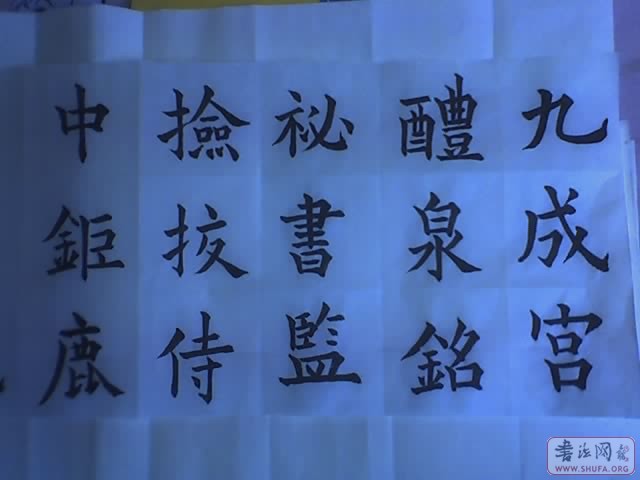 九成宮
醴泉銘
祕書監
撿挍侍
中鉅鹿
書法网
WWW.SHUFA.ORG